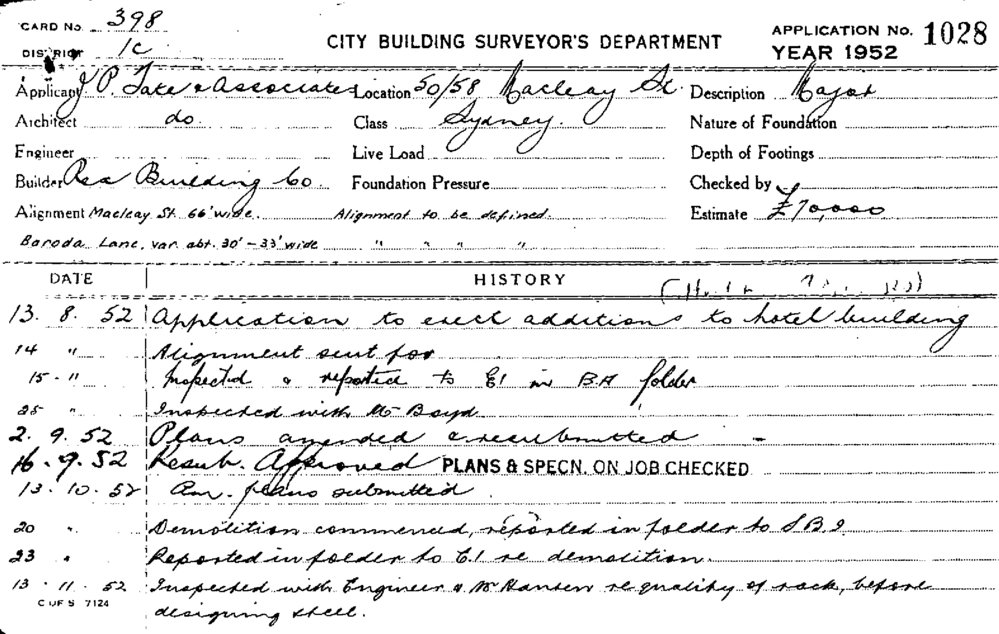 CARD No. 398
DISTRICT 1C
CITY BUILDING SURVEYOR'S DEPARTMENT
APPLICATION No. 1028
YEAR 1952
Applicant J. P. Tate & Associates Location 50/58 Macleay St. Description Major
Architect do. Class Sydney. Nature of Foundation
Engineer Live Load Depth of Footings
Builder Rex Building Co. Foundation Pressure Checked by
Alignment Macleay St. 66' wide. Alignment to be defined. Estimate £70,000
Baroda Lane, var. abt. 30' - 33' wide " " " "
DATE HISTORY
13. 8. 52 Application to erect additions to hotel building
14 " Alignment sent for
15 - " Inspected & reported to E1 in BA folder
25 " Inspected with Mr Boyd
2. 9. 52 Plans amended & resubmitted -
16. 9. 52 Resub. Approved PLANS & SPECN. ON JOB CHECKED
13. 10. 52 Am. plans submitted.
20 " Demolition commenced, reported in folder to S B I
23 " Reported in folder to E.I re demolition.
13 . 11 . 52 Inspected with Engineer & Mr Hansen re quality of rock, before
designing steel.
C OF S 7124